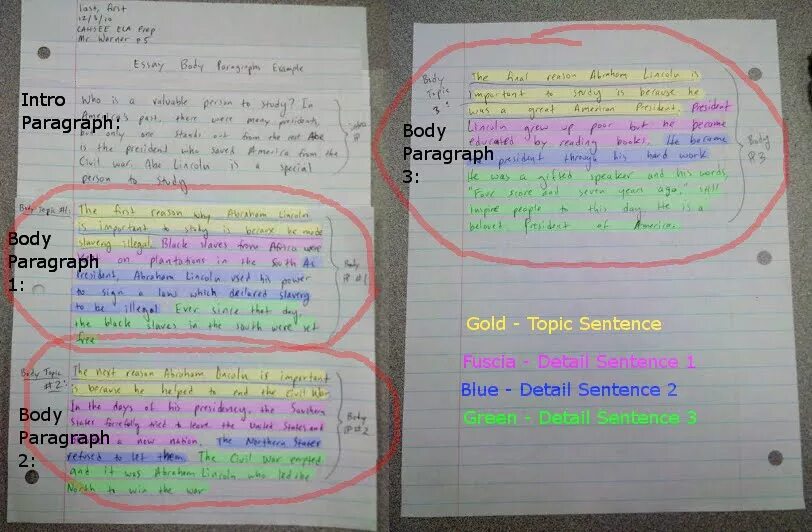 last, first
12/3/10
CAHSEE ELA Prep
Mr. Warner p5
Essay Body Paragraphs Example
Intro
Paragraph:
Who is a valuable person to study? In
America's past, there were many presidents,
but only one stands out from the rest. Abe
is the president who saved America from the
Civil War. Abe Lincoln is a special
person to study
Body Topic #1:
Body
Paragraph
1:
The first reason why Abraham Lincoln
is important to study is because he made
slavery illegal. Black slaves from Africa were
on plantations in the South. As
President, Abraham Lincoln used his power
to sign a law which declared slavery
to be illegal. Ever since that day,
the black slaves in the south were set
free.
Body
P #1
Body Topic
#2:
Body
Paragraph
2:
The next reason Abraham Lincoln is important
is because he helped to end the Civil War.
In the days of his presidency, the Southern
States forcefully tried to leave the United States and
a new nation. The Northern States
refused to let them. The Civil War erupted
and it was Abraham Lincoln who led the
North to win the war
Body
P #2
Body
Topic
3:
Body
Paragraph
3:
The final reason Abraham Lincoln is
important to study is because he
was a great American President. President
Lincoln grew up poor but he became
educated by reading books. He became
president through his hard work.
He was a gifted speaker and his words,
"Four score and seven years ago," still
inspire people to this day. He is a
beloved President of America.
Body
P 3
Gold - Topic Sentence
Fuscia - Detail Sentence 1
Blue - Detail Sentence 2
Green - Detail Sentence 3